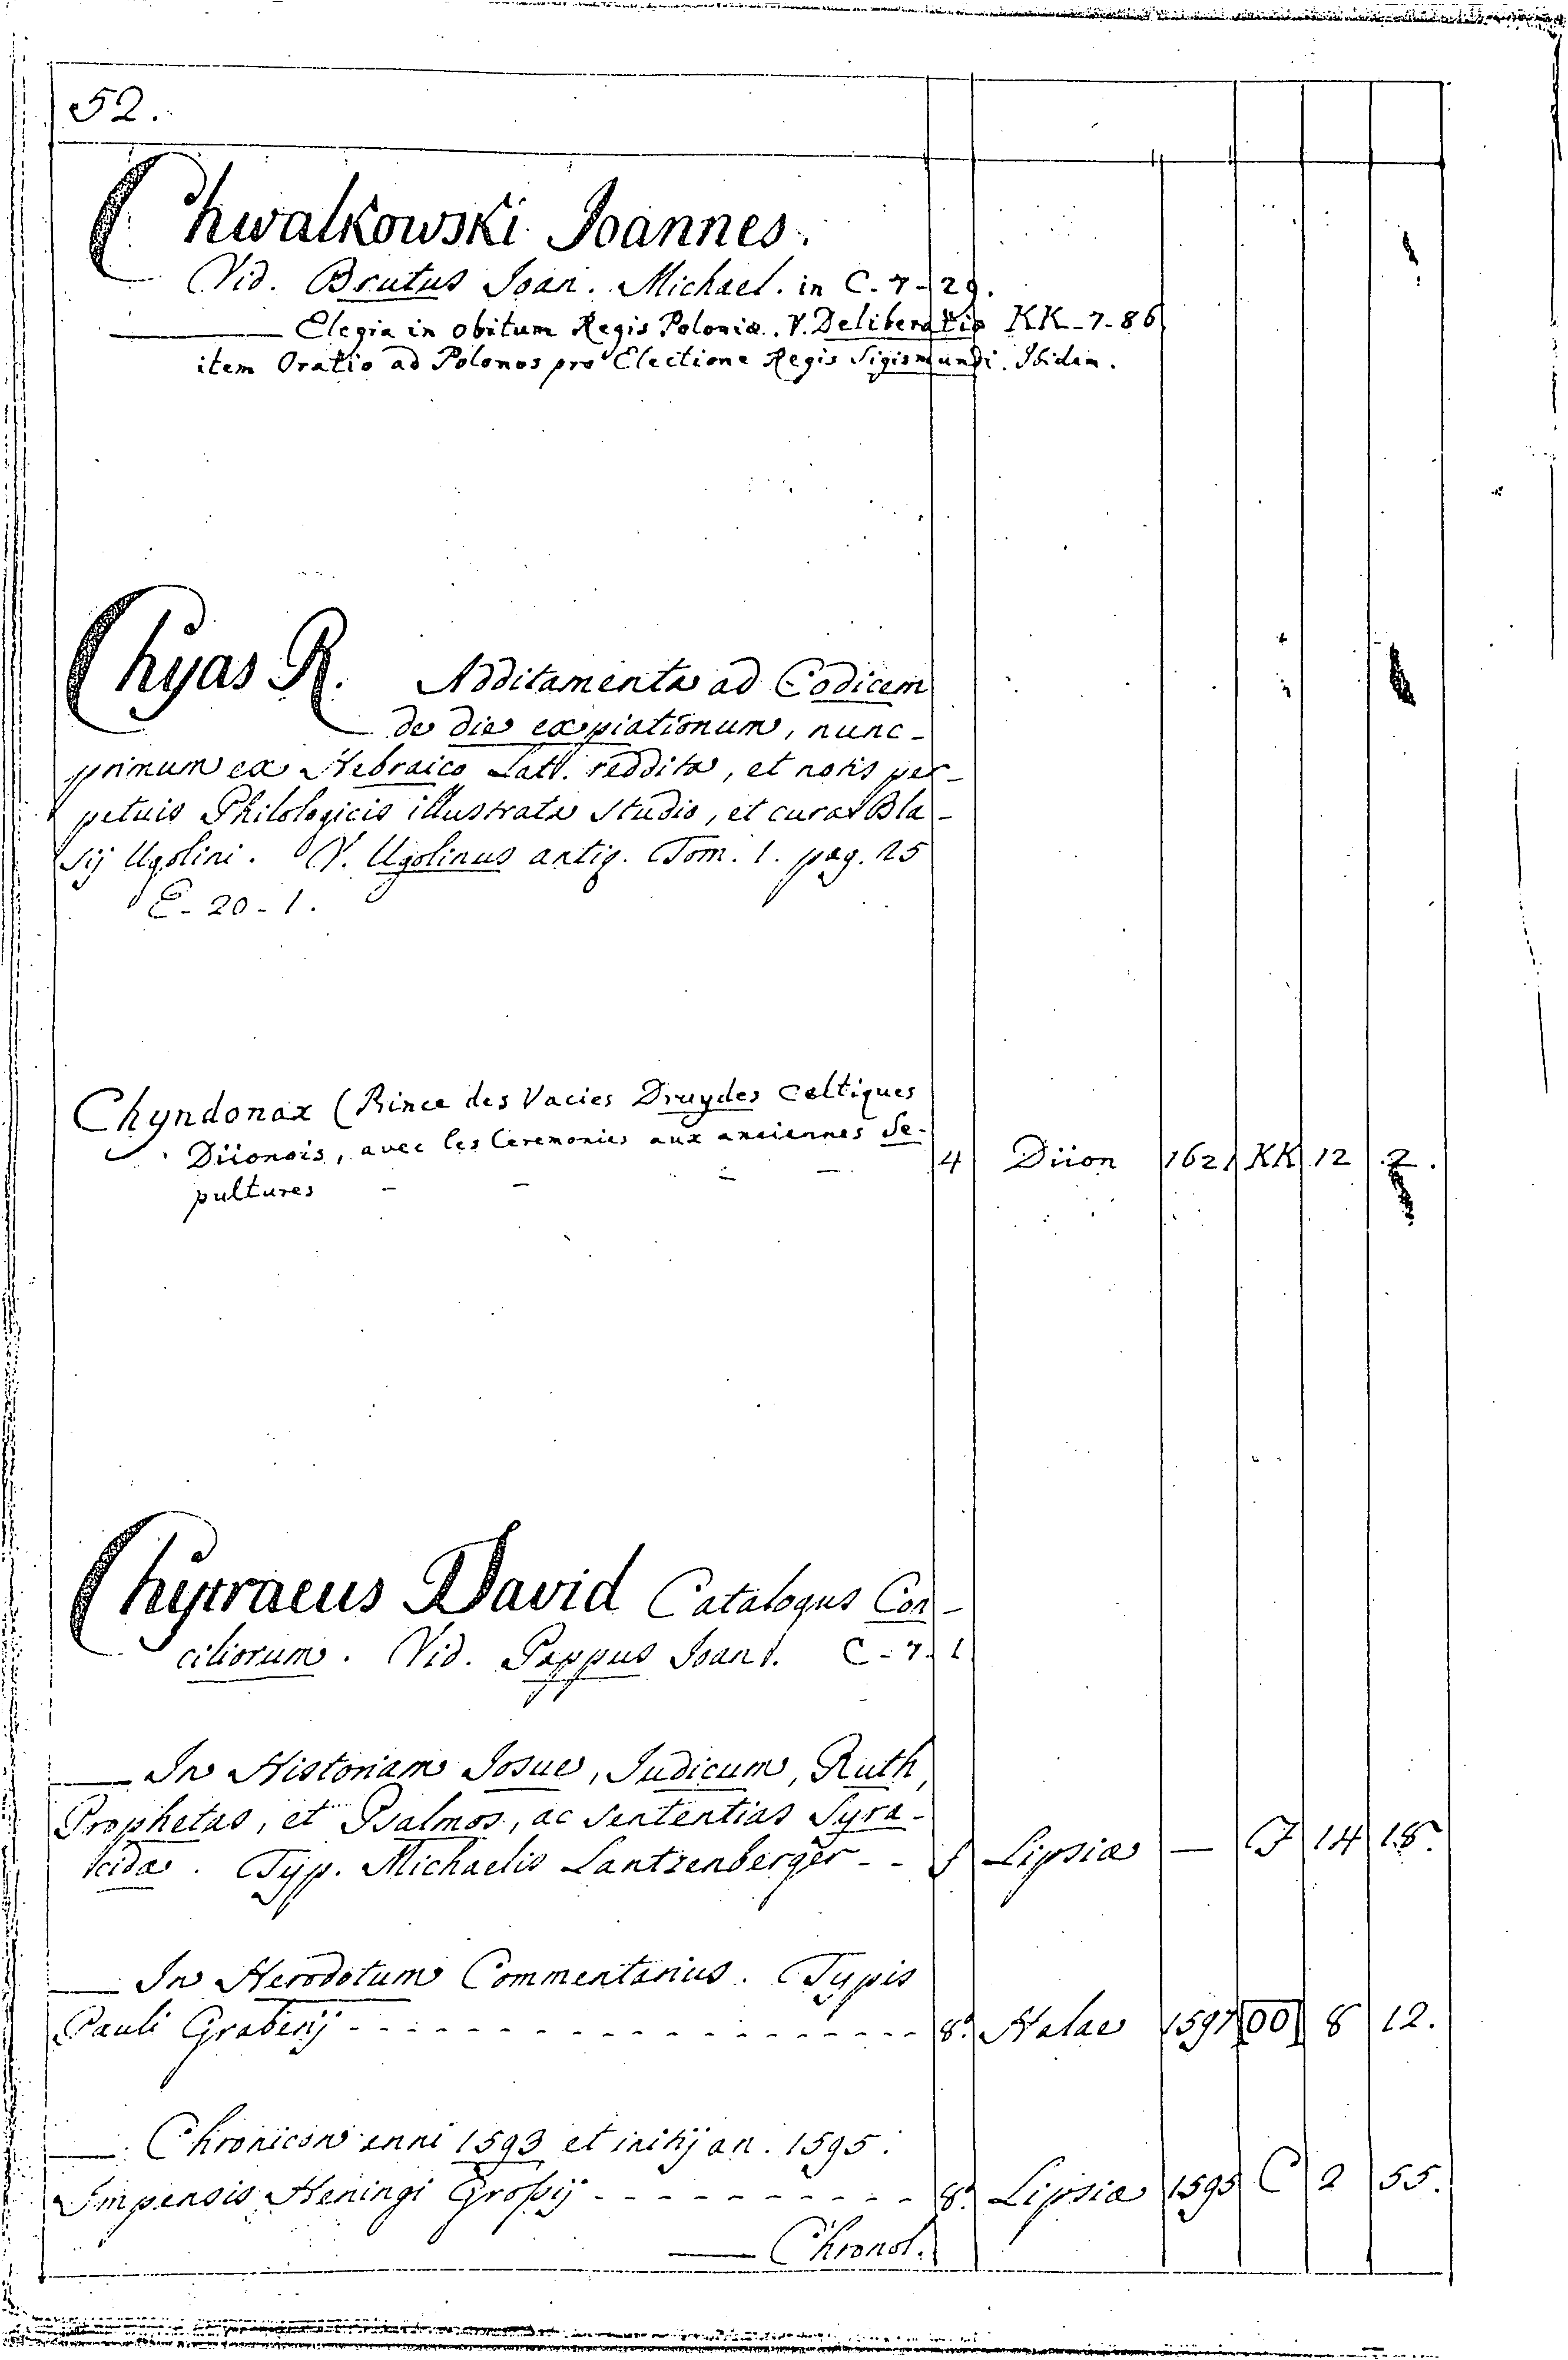 52.
Chwalkowski Joannes.
Vid. Brutus Joan. Michael. in C-7-29.
Elegia in obitum Regis Poloniæ. V. Deliberatio KK-7-86
item Oratio ad Polonos pro Electione Regis Sigismundi. Ibidem.
Chyas R. Additamenta ad Codicem
de die expiationum, nunc-
primum ex Hebraico Latt. reddita, et notis per-
petuis Philologicis illustrata studio, et cura Bla-
sij Ugolini. V. Ugolinus antiq. Tom. 1. pag. 25
C-20-1.
Chyndonax (Prince des Vacies Druydes Celtiques
Diionois, avec les Ceremonies aux anciennes Se-
pultures - - - - 4 Diion 1621 KK 12 2.
Chytraeus David Catalogus Con-
ciliorum. Vid. Pappus Joan. C-7-1
— In Historiam Josue, Judicum, Ruth,
Prophetas, et Psalmos, ac Sententias Syra-
cidae. Typ. Michaelis Lantzenberger - - f Lipsiae — J 14 18.
— In Herodotum Commentarius. Typis
Pauli Graberij - - - - 8º Halae 1597 OO 8 12.
— Chronicon anni 1593 et initij an. 1595.
Impensis Heningi Großij - - - - 8º Lipsiae 1595 C 2 55.
— Chronol.